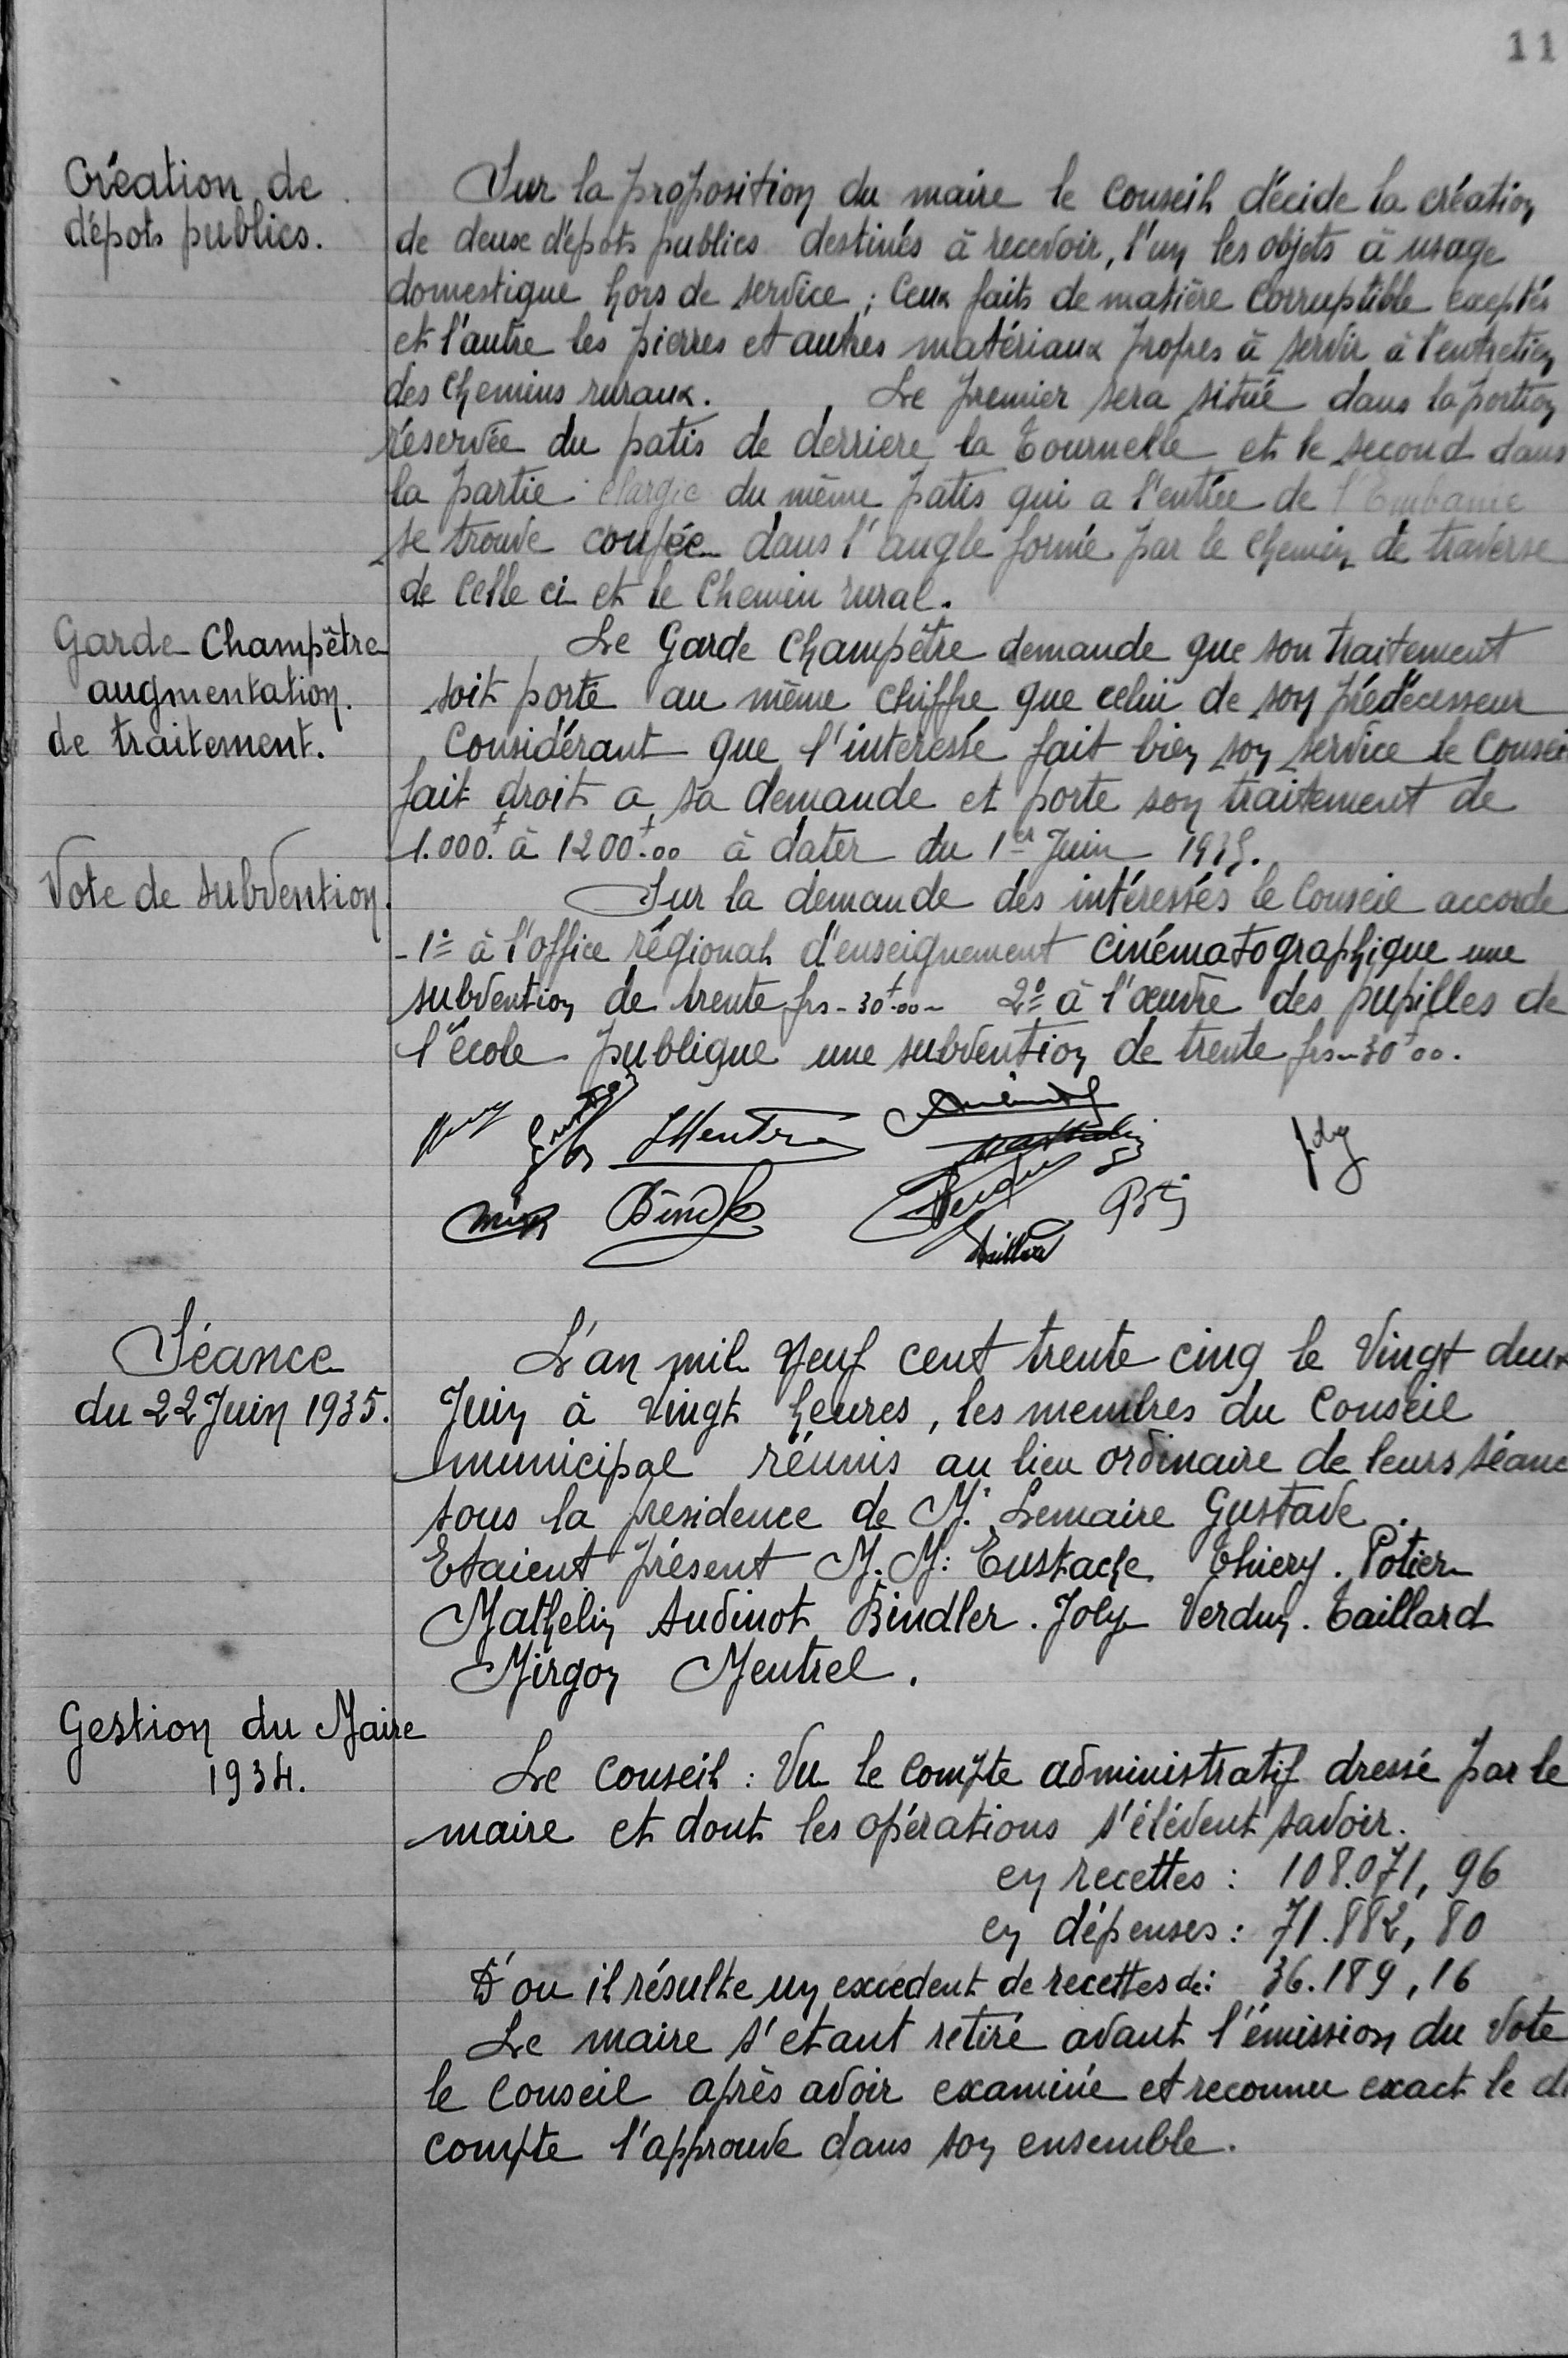 11
Création de
dépots publics.
Sur la proposition du maire le Conseil décide la création
de deux dépots publics destinés à recevoir, l'un les objets à usage
domestique hors de service ; ceux faits de matière corruptible exeptés
et l'autre les pierres et autres matériaux propres à servir à l'entretien
des chemins ruraux. Le premier sera situé dans la portion
réservée du patis de derriere la Tournelle et le second dans
la partie élargie du même patis qui a l'entrée de l'Embanie
se trouve coupée dans l'angle formé par le chemin de traverse
de celle ci et le chemin rural.
Garde Champêtre
augmentation
de traitement.
Le Garde Champêtre demande que son traitement
soit porté au même chiffre que celui de son prédécesseur
Considérant que l'interessé fait bien son service le Consei
fait droit a sa demande et porte son traitement de
1.000f à 1200f00 à dater du 1er Juin 1935.
Vote de subvention.
Sur la demande des intéressés le Conseil accorde
- 1° à l'office régional d'enseignement cinématographique une
subvention de trente frs - 30f00 - 2° à l'œuvre des pupilles de
l'école publique une subvention de trente frs - 30f00.
Séance
du 22 Juin 1935.
L'an mil neuf cent trente cinq le vingt deux
Juin à vingt heures, les membres du Conseil
municipal réunis au lieu ordinaire de leurs séanc
sous la présidence de M. Lemaire Gustave.
Etaient présent M.M: Eustache Thiery. Potier
Mathelin Audinot Bindler. Joly Verdun. Taillard
Mirgon Mentrel.
Gestion du Maire
1934.
Le Conseil : Vu le compte administratif dressé par le
maire et dont les opérations s'élèvent savoir.
en recettes : 108.071, 96
en dépenses : 71.882, 80
D'ou il résulte un excedent de recettes de: 36.189, 16
Le maire s'étant retiré avant l'émission du vote
le Conseil après avoir examiné et reconnu exact le d
compte l'approuve dans son ensemble.